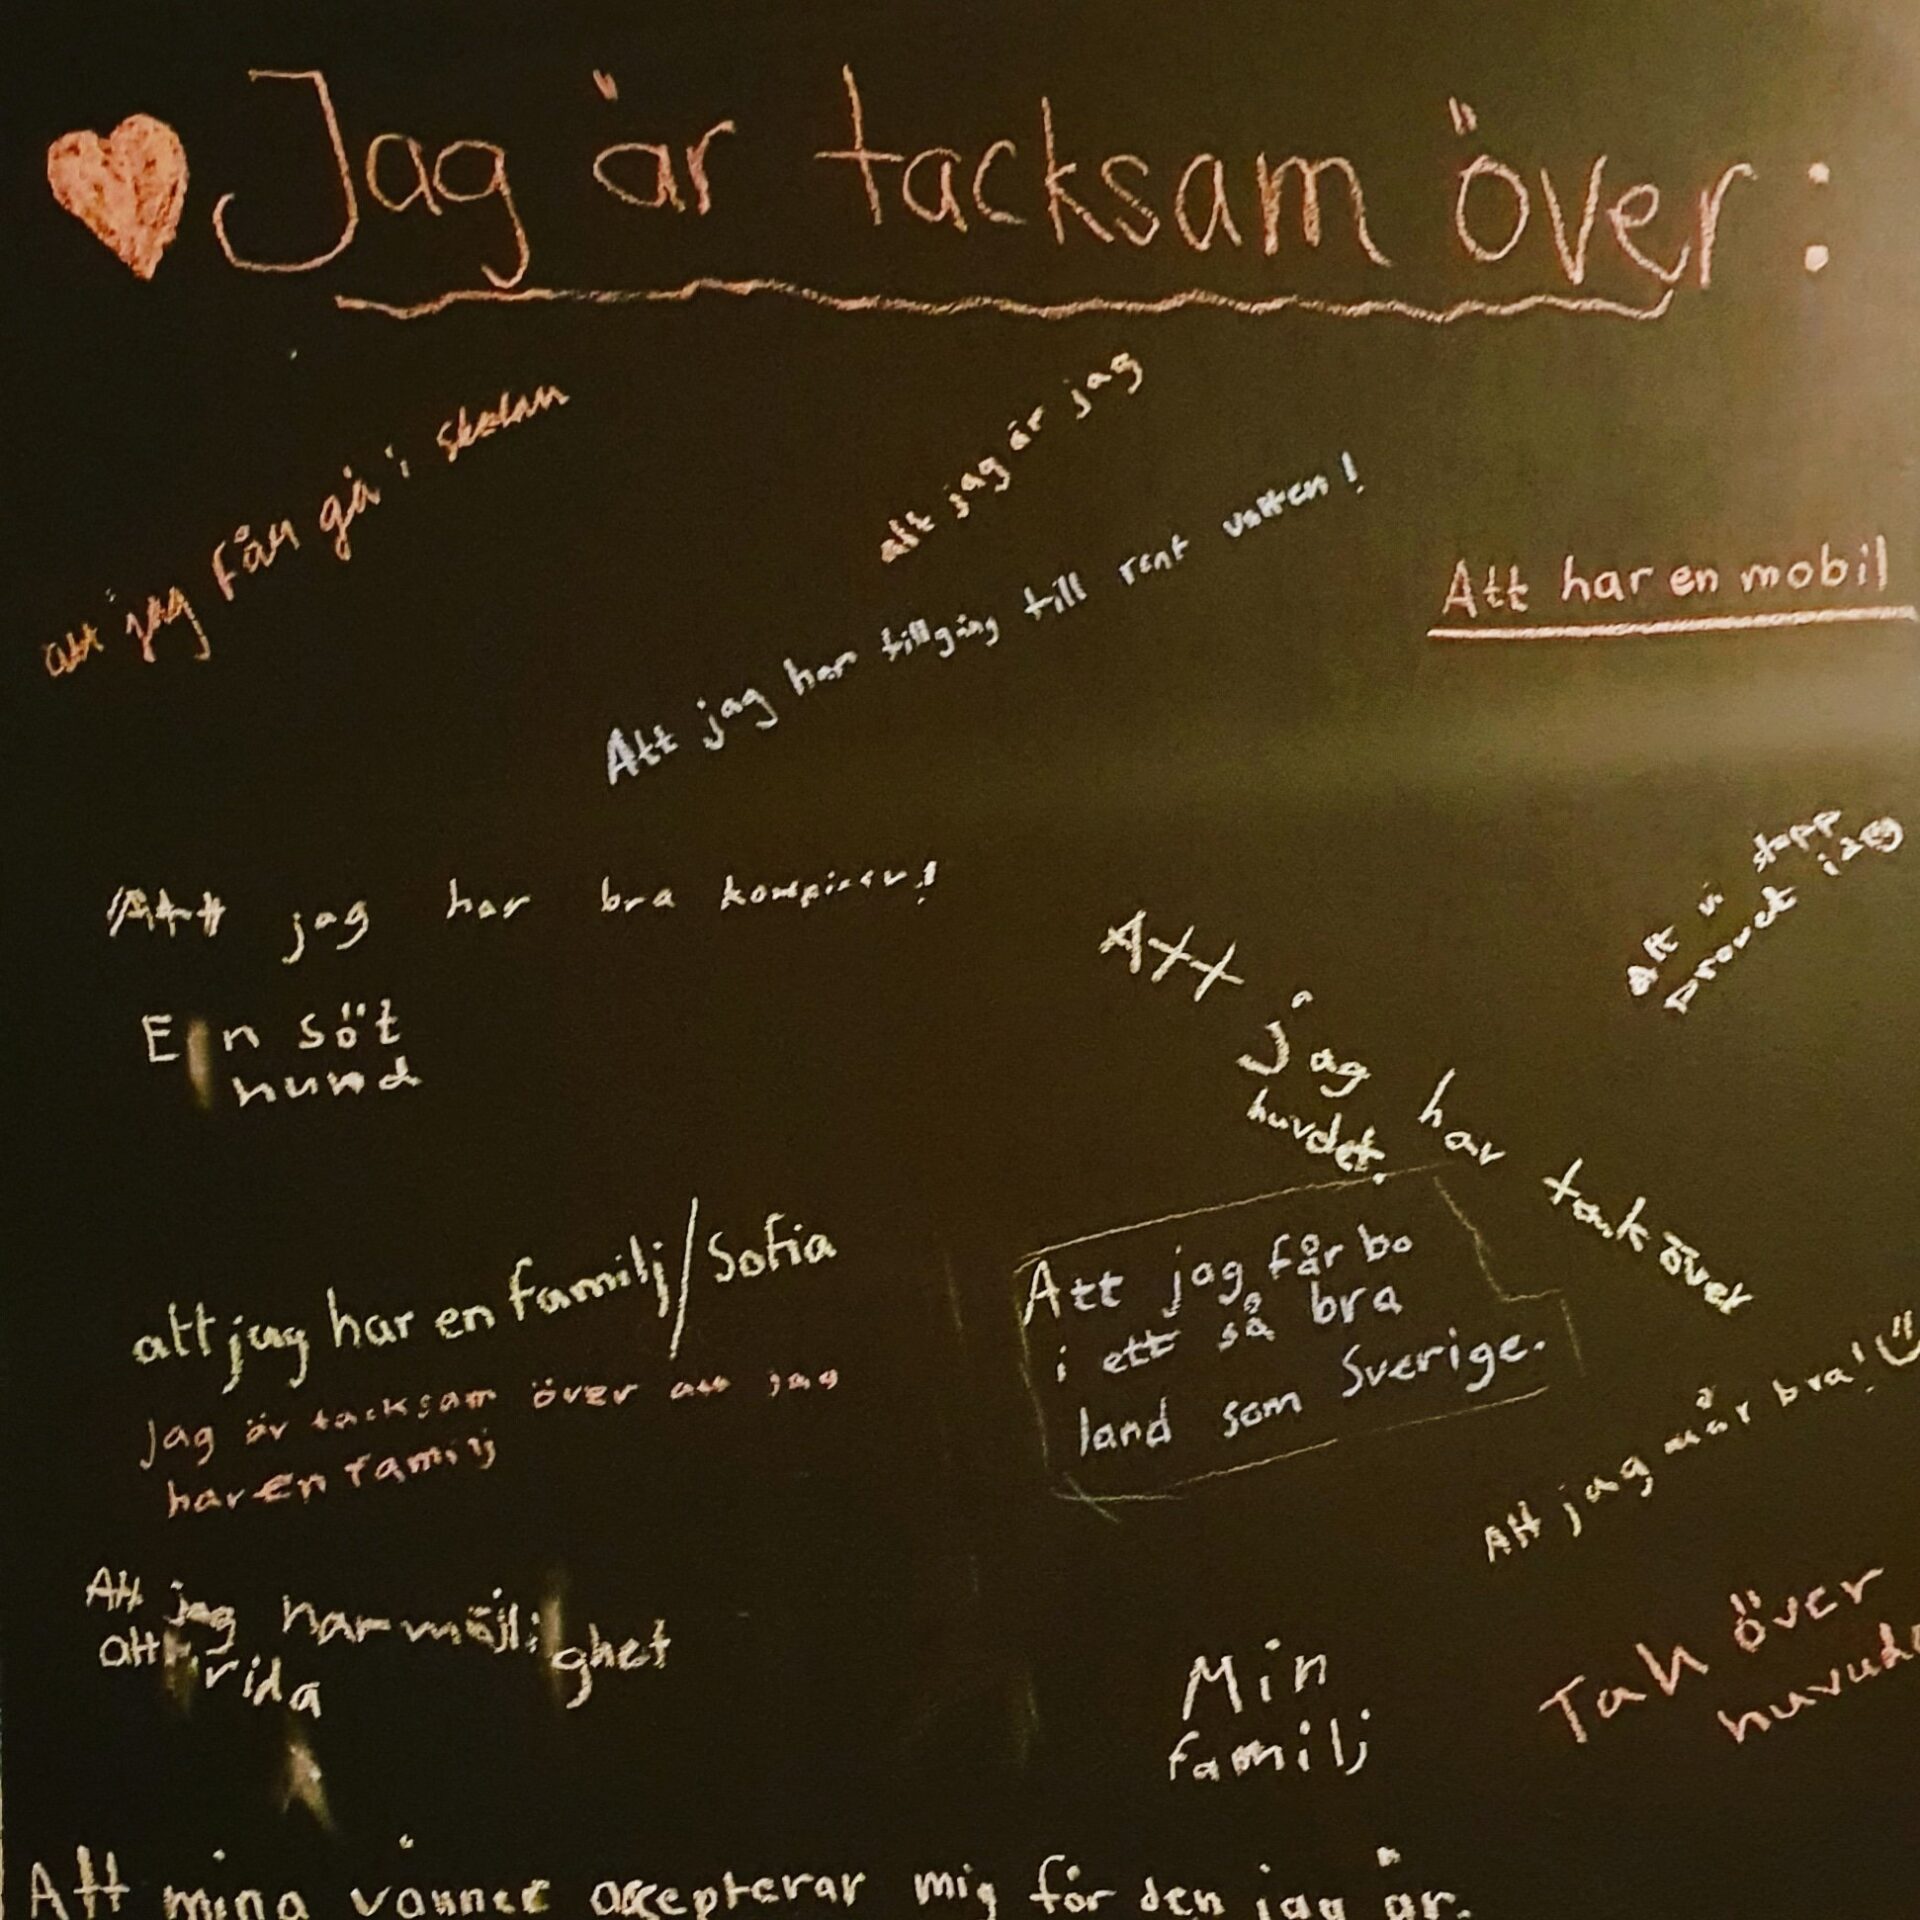 Jag är tacksam över:
att jag får gå i skolan
att jag är jag
Att jag har tillgång till rent vatten!
Att har en mobil
Att jag har bra kompisar!
Att vi stopp
provet idag
En söt
hund
Att
jag har tak över
huvdet.
att jag har en familj/Sofia
Jag är tacksam över att jag
har en familj
Att jag får bo
i ett så bra
land som Sverige.
Att jag mår bra! ü
Att jag har möjlighet
att rida
Min
familj
Tak över
huvude
Att mina vänner accepterar mig för den jag är.